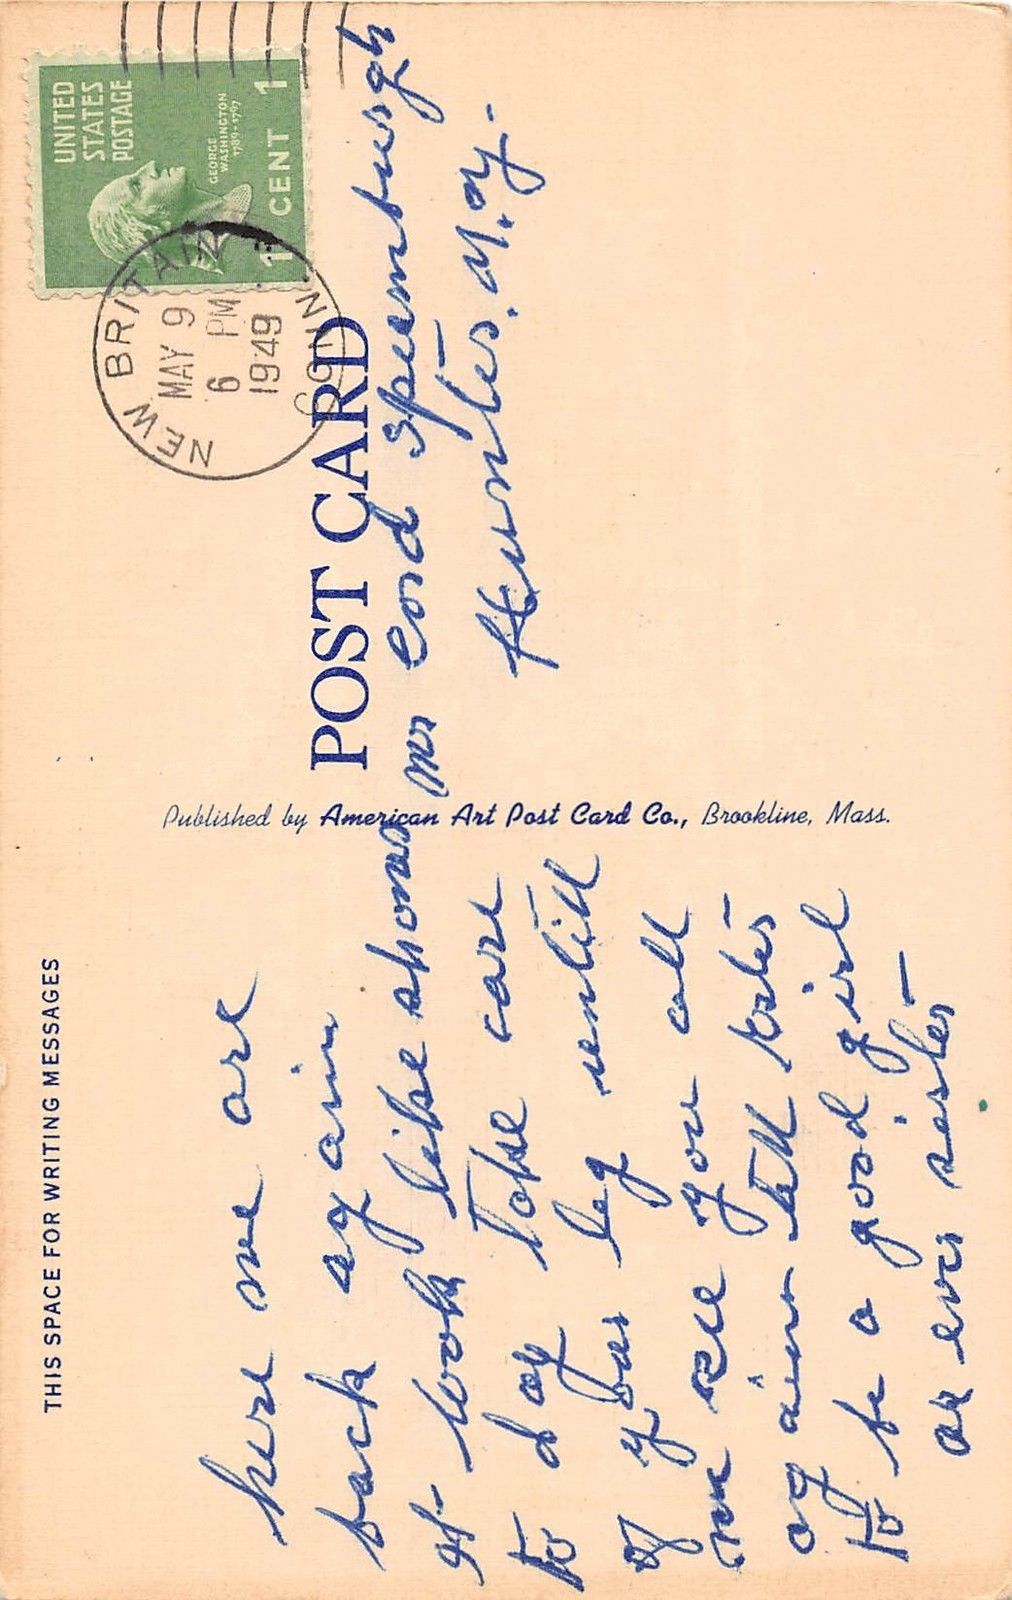 THIS SPACE FOR WRITING MESSAGES
here we are
back again
it look like showas
to day Take care
of your leg untill
we see you all
again tell
to be a good girl
as ever sister
Published by American Art Post Card Co., Brookline, Mass.
POST CARD
mr Cord Speemburgh
Hunter. N.Y.
NEW BRITAIN
CONN.
MAY 9
6 PM
1949
UNITED
STATES
POSTAGE
GEORGE
WASHINGTON
1789-1797
1 CENT 1